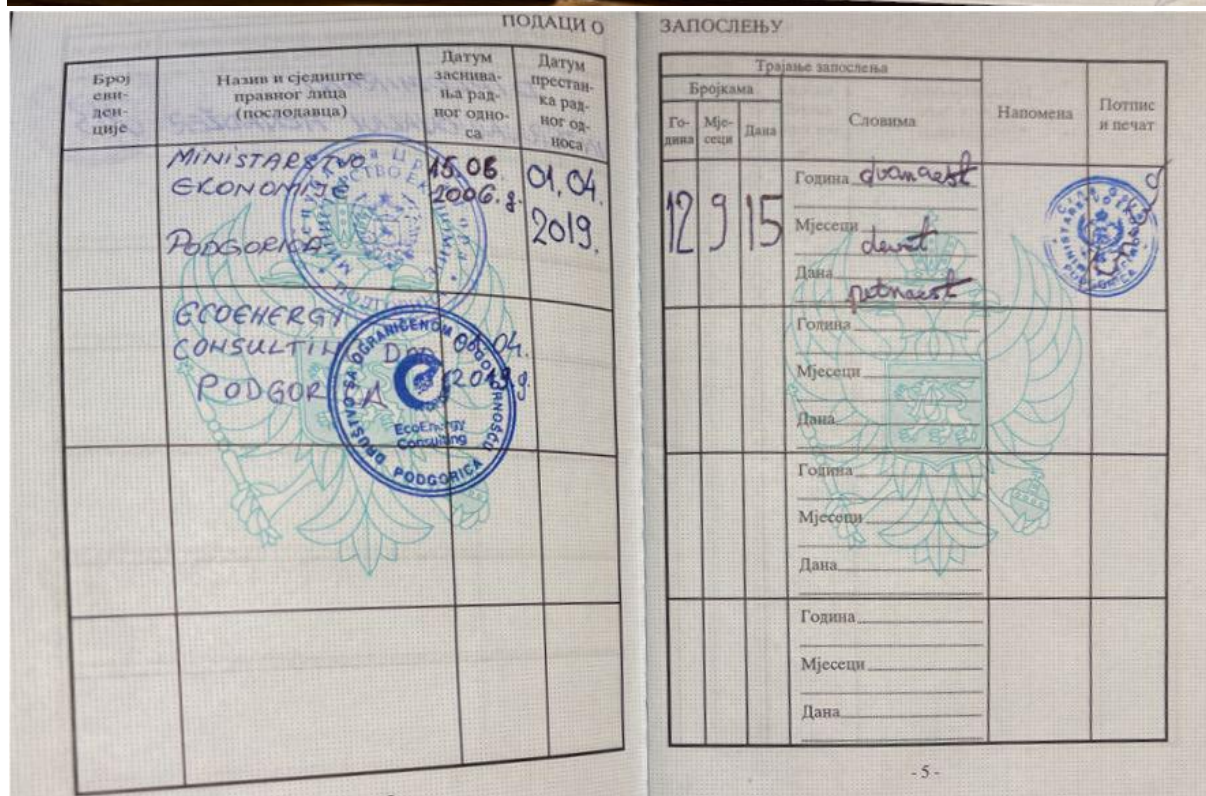 ПОДАЦИ О
Број еви-ден-ције
Назив и сједиште правног лица (послодавца)
Датум заснива-ња рад-ног одно-са
Датум престан-ка рад-ног од-носа
MINISTARSTVO
EKONOMIJE
PODGORICA
15.06.
2006.g.
01.04.
2019.
ECOENERGY
CONSULTING DOO
PODGORICA
01.04.
2019.g.
DRUŠTVO SA OGRANIČENOM ODGOVORNOŠĆU
EcoEnergy
Consulting
PODGORICA
ЗАПОСЛЕЊУ
Трајање запослења
Бројкама
Го-дина
Мје-сеци
Дана
Словима
Напомена
Потпис и печат
12
9
15
Година dvanaest
Мјесеци devet
Дана petnaest
Година
Мјесеци
Дана
Година
Мјесеци
Дана
Година
Мјесеци
Дана
- 5 -